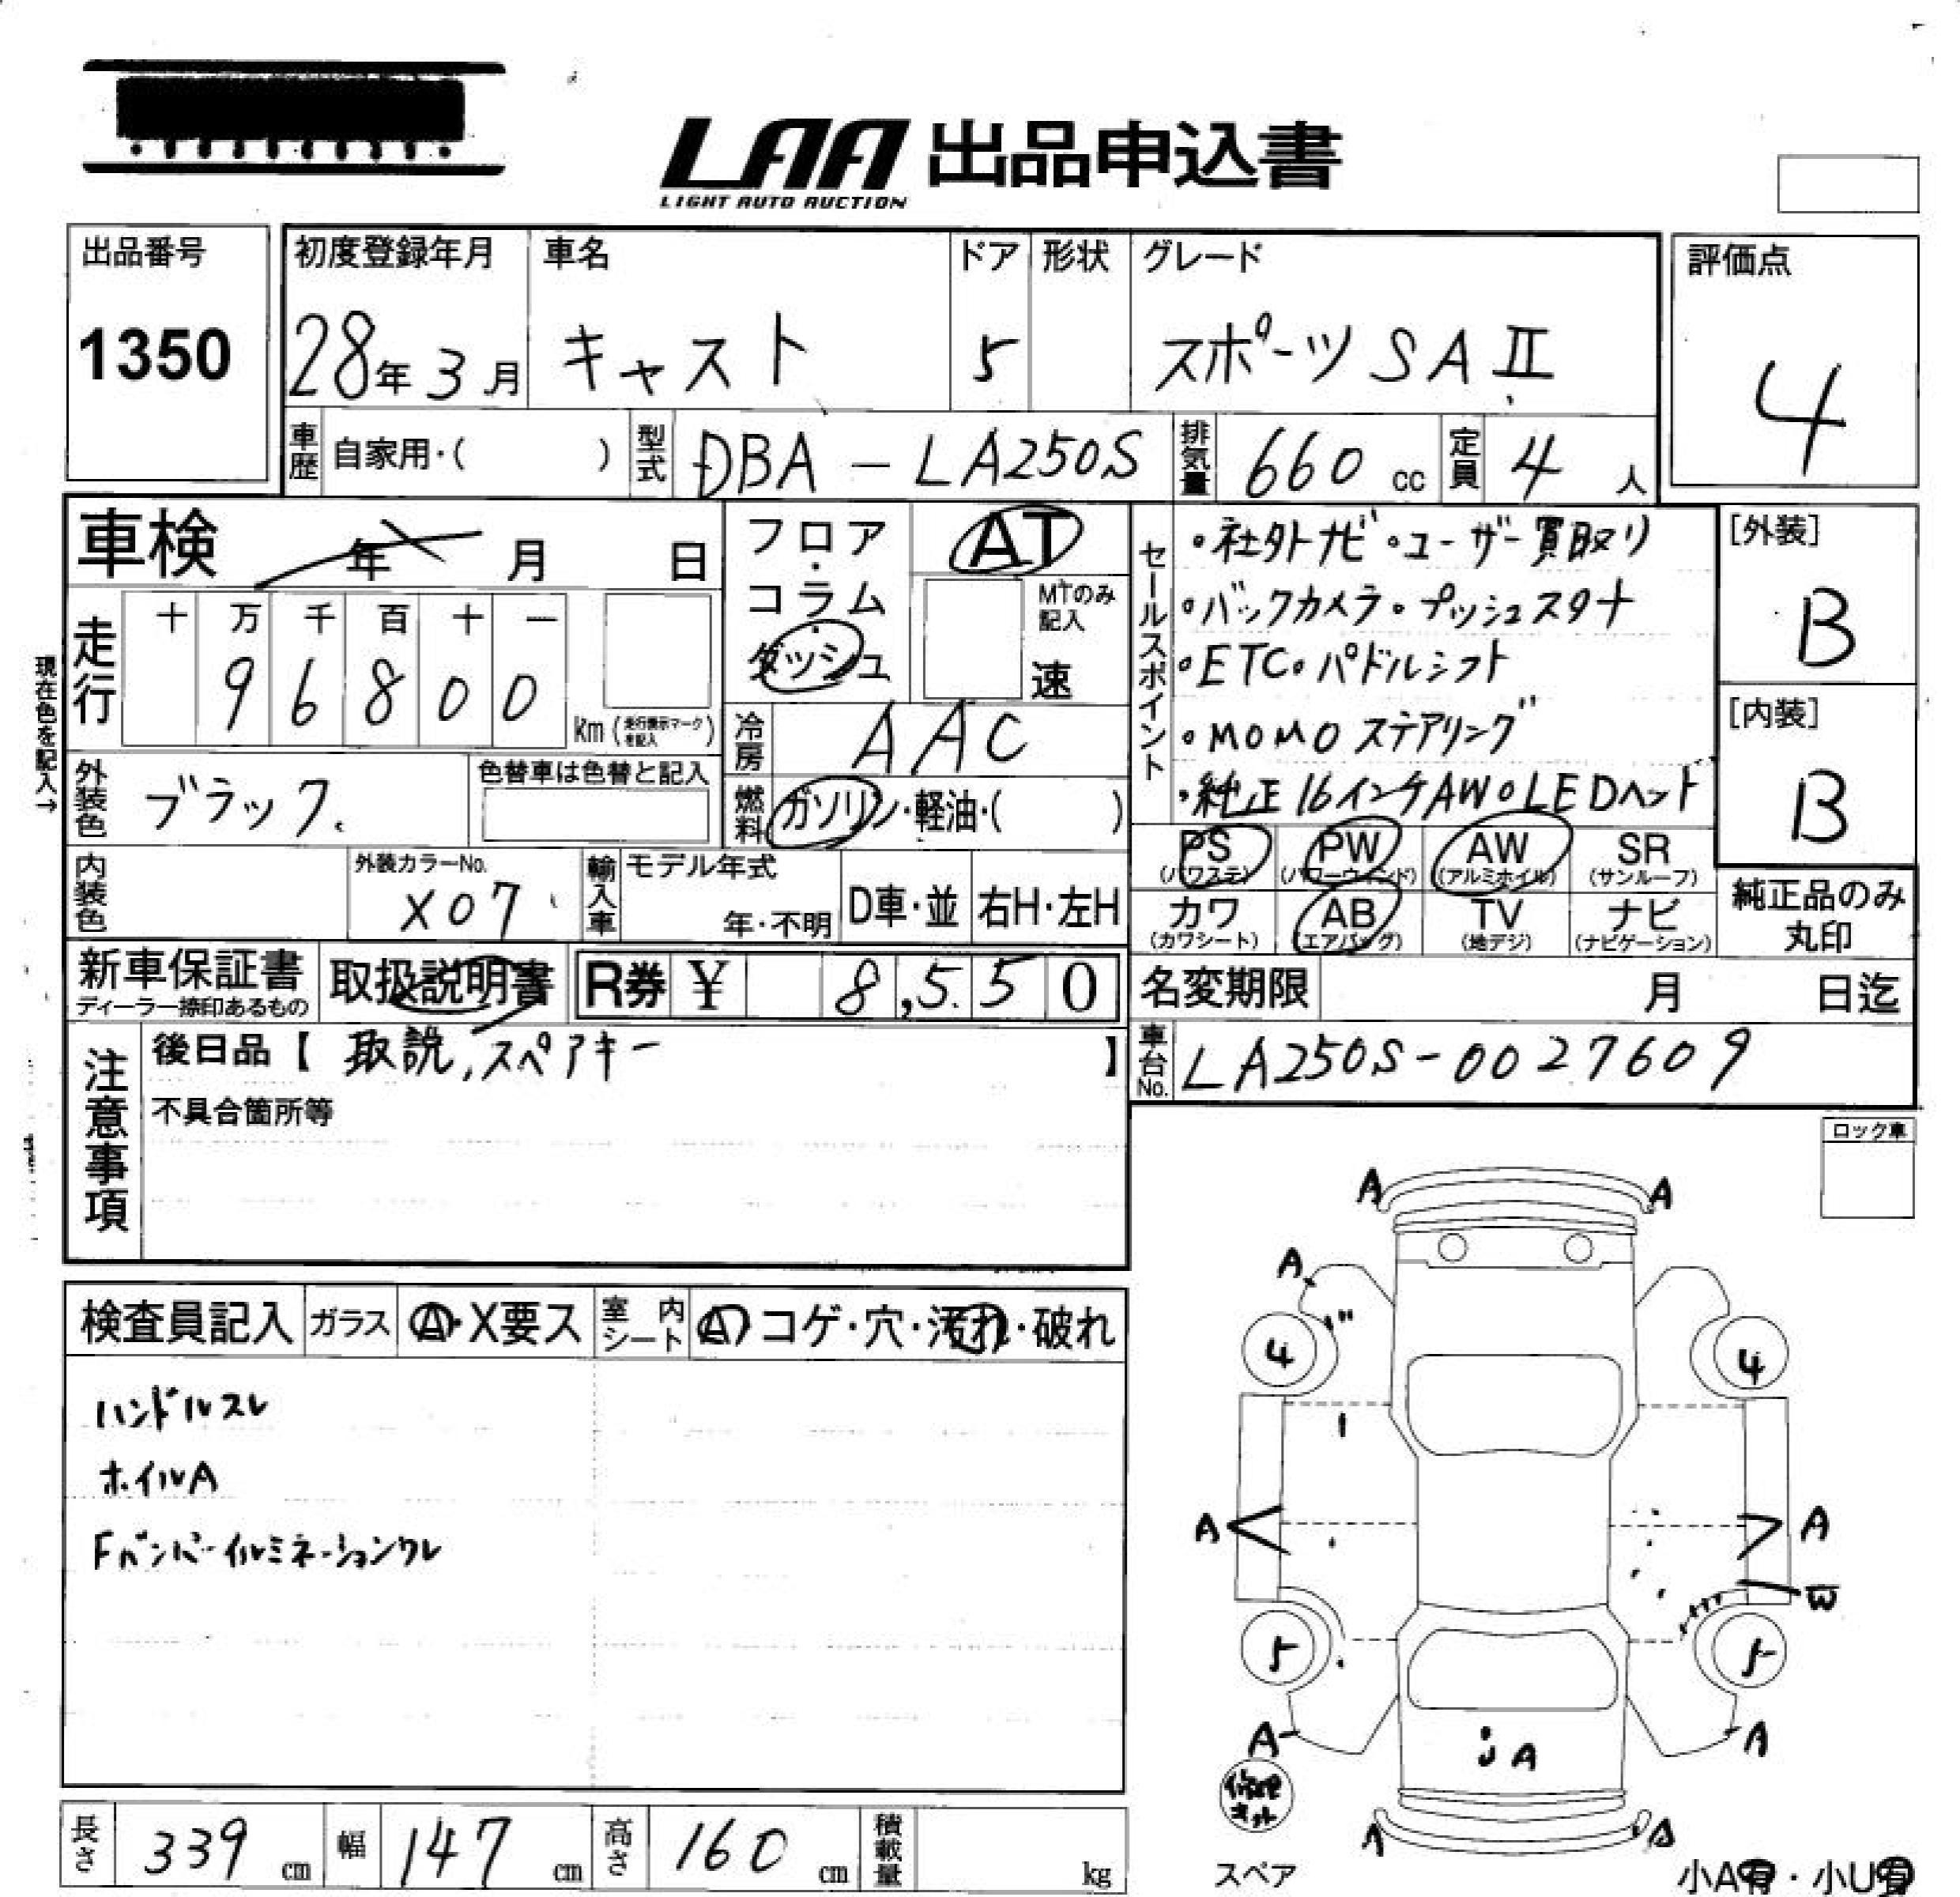 LAA 出品申込書
LIGHT AUTO AUCTION
出品番号
1350
初度登録年月
28年 3月
車名
キャスト
ドア
5
形状
グレード
スポーツ SA II
評価点
4
車歴
自家用・( )
型式
DBA - LA250S
排気量
660 cc
定員
4 人
車検
年 月 日
フロア・コラム・ダッシュ
AT
MTのみ記入
速
セールスポイント
・社外ナビ・ユーザー買取り
・バックカメラ・プッシュスタート
・ETC・パドルシフト
・MOMO ステアリング
・純正16インチAW・LEDヘッド
[外装]
B
[内装]
B
現在色を記入→
走行
十 万 千 百 十 一
9 6 8 0 0
km (走行表示マークを記入)
冷房
AAC
外装色
ブラック
色替車は色替と記入
燃料
ガソリン・軽油・( )
内装色
外装カラーNo.
X07
輸入車
モデル年式
年・不明
D車・並
右H・左H
PS
(パワステ)
PW
(パワーウィンド)
AW
(アルミホイル)
SR
(サンルーフ)
カワ
(カワシート)
AB
(エアバッグ)
TV
(地デジ)
ナビ
(ナビゲーション)
純正品のみ丸印
新車保証書
ディーラー捺印あるもの
取扱説明書
R券 ¥ 8,550
名変期限
月 日迄
注意事項
後日品【 取説,スペアキー 】
不具合箇所等
車台No.
LA250S-0027609
ロック車
検査員記入
ガラス
A・X要ス
室内シート
A コゲ・穴・汚れ・破れ
ハンドルスレ
ホイルA
Fバンパーイルミネーションワレ
A A
A
4 4
A A
W
5 5
A A
A
修理キット
A A
スペア
小A有・小U有
長さ
339 cm
幅
147 cm
高さ
160 cm
積載量
kg